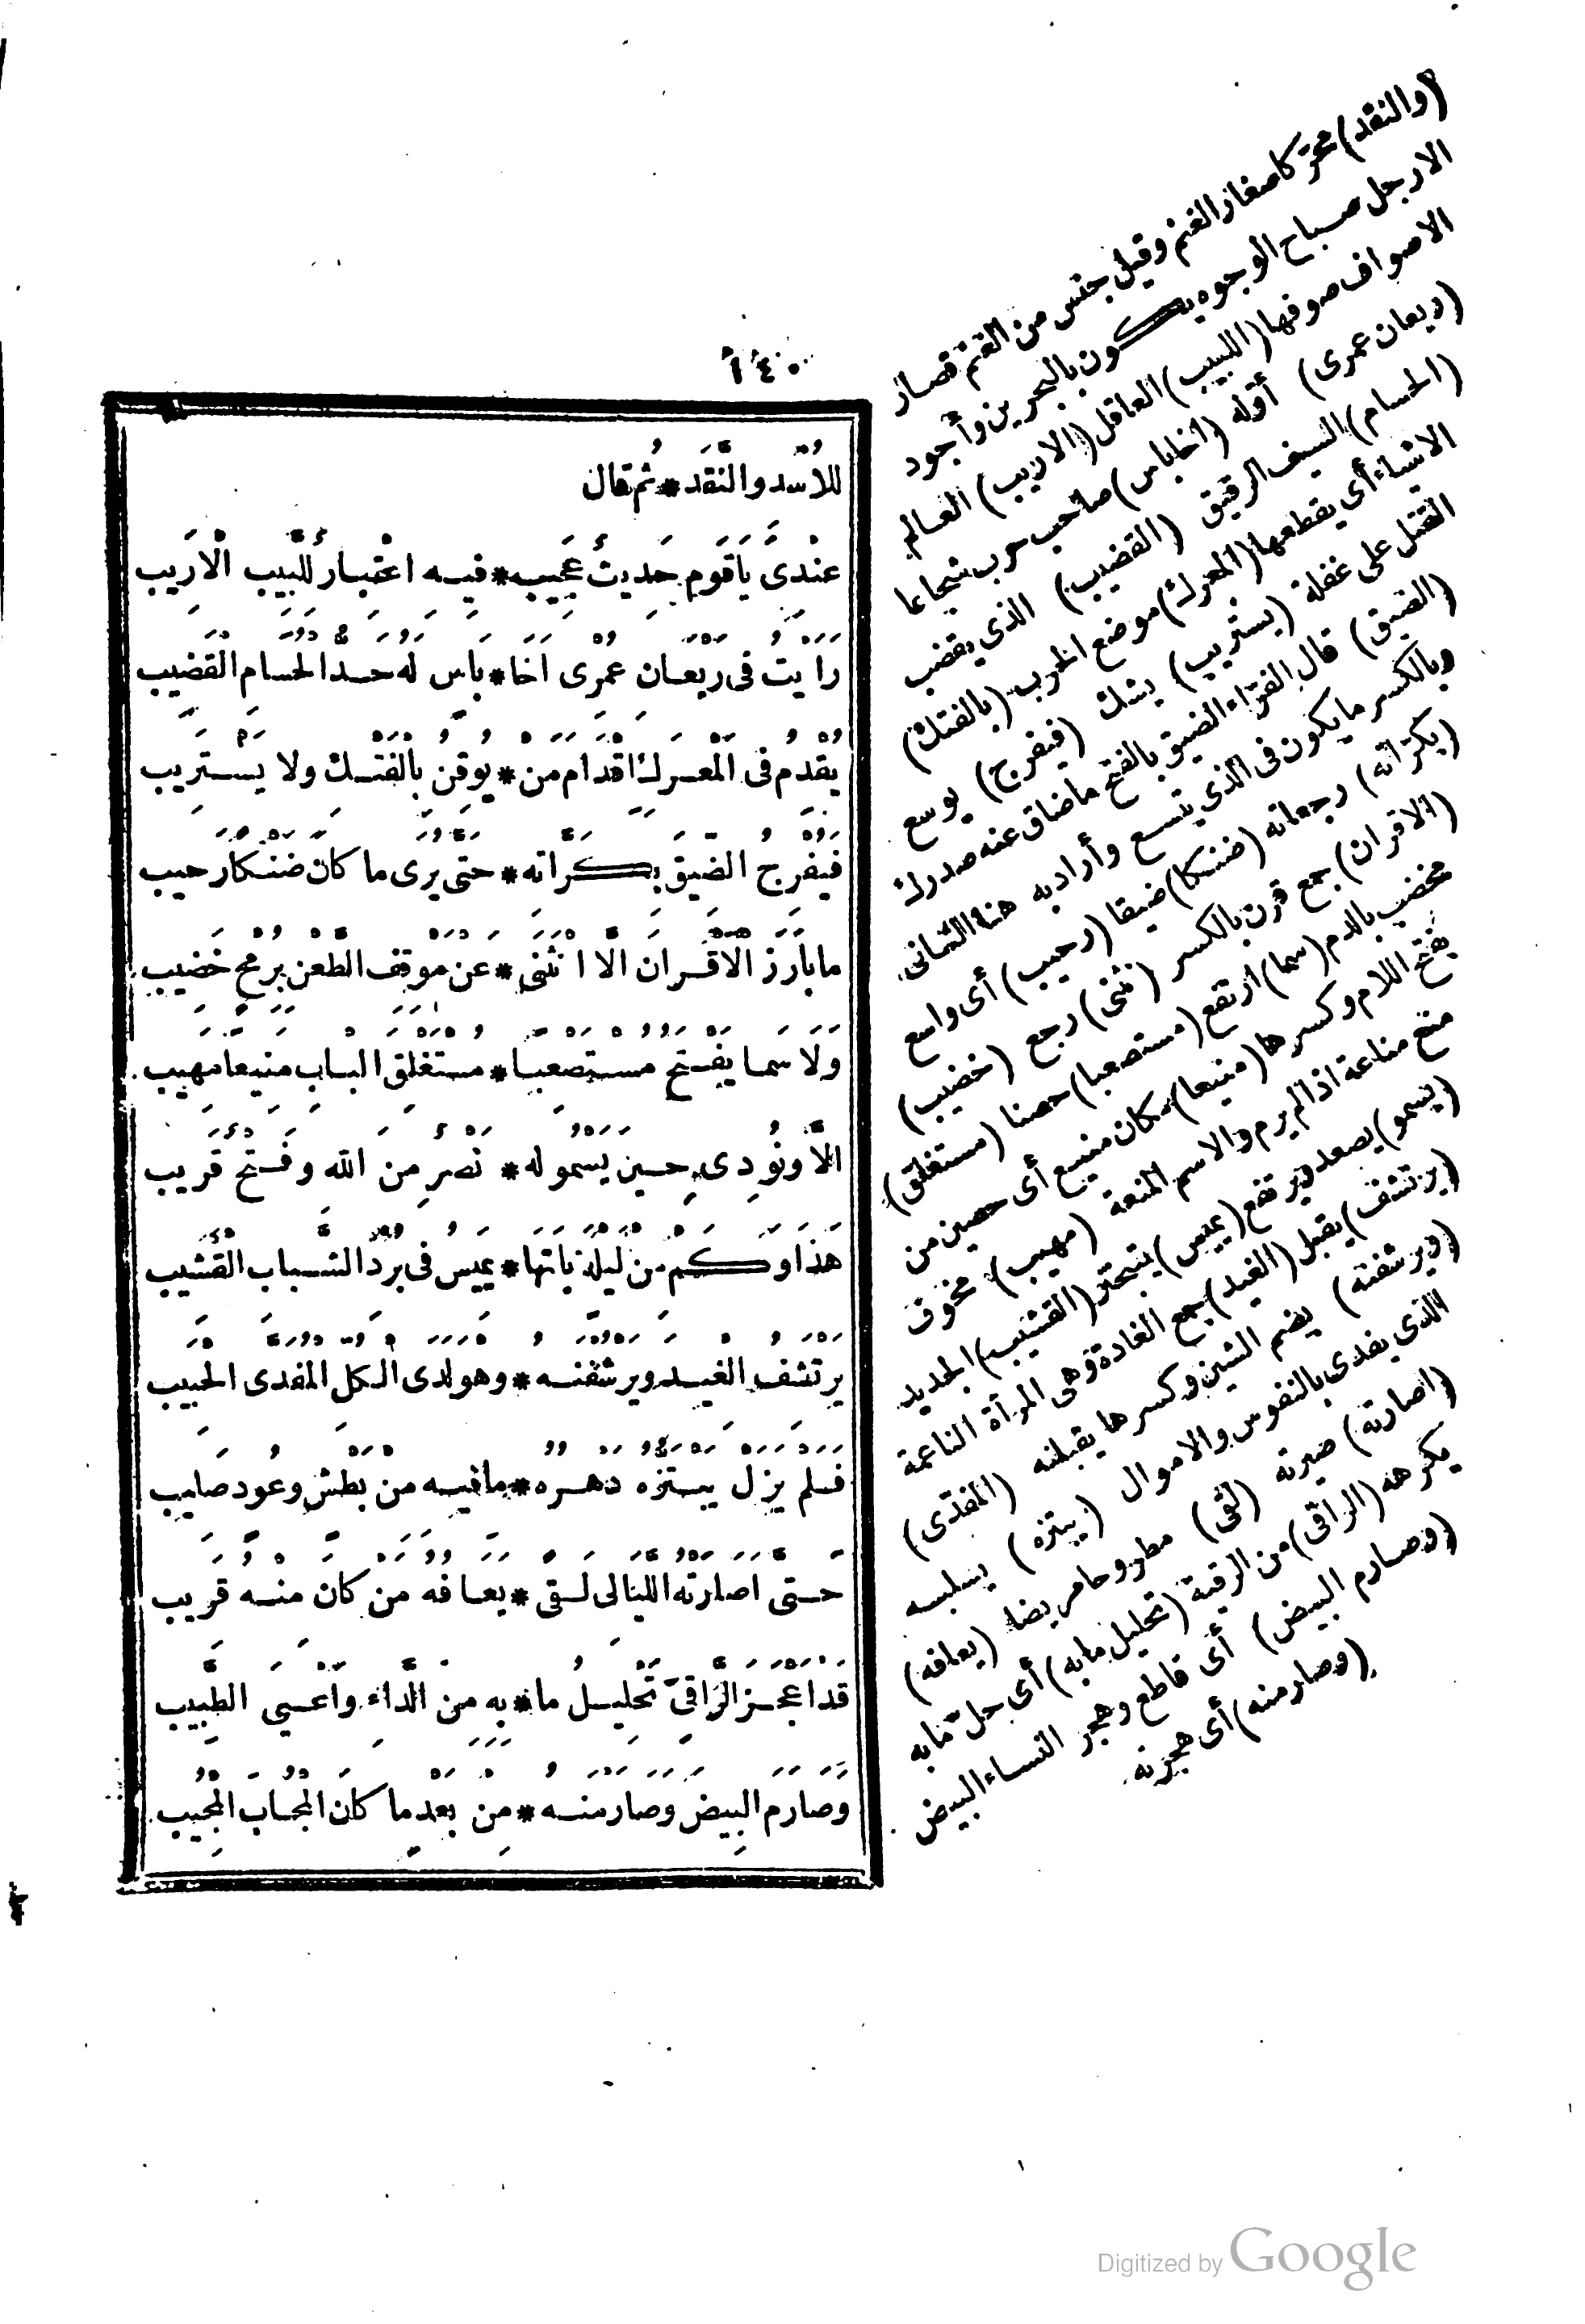 ١٤٠
للأسد والنقد * ثم قال
عندى يا قوم حديث عجيب * فيه اعتبار للبيب الأريب
رأيت فى ريعان عمرى أخا * بأس له حد الحسام القضيب
يقدم فى المعرك اقدام من * يوقن بالفتك ولا يستريب
فيفرج الضيق بكراته * حتى يرى ما كان ضنكا رحيب
ما بارز الأقران الا انثنى * عن موقف الطعن برمح خضيب
ولا سما يفتح مستصعبا * مستغلق الباب منيعا مهيب
الا ونودى حين يسمو له * نصر من الله وفتح قريب
هذا وكم من ليلة باتها * يميس فى برد الشباب القشيب
يرتشف الغيد ويرشفنه * وهو لدى الكل المفدى الحبيب
فلم يزل يبتزه دهره * ما فيه من بطش وعود صليب
حتى أصارته الليالى لقى * يعافه من كان منه قريب
قد أعجز الراقى تحليل ما * به من الداء وأعيى الطبيب
وصارم البيض وصارمنه * من بعد ما كان المجاب المجيب
(والنقد) محركا صغار الغنم وقيل جنس من الغنم قصار
الارجل صباح الوجوه يكون بالبحرين وأجود
الاصواف صوفها (اللبيب) العاقل (الاريب) العالم
(ريعان عمرى) أوله (أخا باس) صاحب حرب شجاعا
(الحسام) السيف الرقيق (القضيب) الذى يقضب
الاشياء أى يقطعها (المعرك) موضع الحرب (بالفتك)
القتل على غفلة (يستريب) يشك (فيفرج) يوسع
(الضيق) قال الفراء الضيق بالفتح ما ضاق عنه صدرك
وبالكسر ما يكون فى الذى يتسع وأراد به هنا الثمانى
(بكراته) رجعاته (ضنكا) ضيقا (رحيب) أى واسع
(الاقران) جمع قرن بالكسر (نثنى) رجع (خضيب)
مخضب بالدم (سما) ارتفع (مستصعبا) حصنا (مستغلق)
بفتح اللام وكسرها (منيعا) مكان منيع أى حصين من
منع مناعة اذا لم يرم والاسم المنعة (مهيب) مخوف
(يسمو) يصعد ويرتفع (يميس) يتبختر (القشيب) الجديد
(يرتشف) يقبل (الغيد) جمع الغادة وهى المرأة الناعمة
(ويرشفنه) يضم الشين وكسرها يقبلنه (المفدى)
الذى يفدى بالنفوس والاموال (يبتزه) يسلبه
(اصارته) صيرته (لقى) مطروحا مريضا (يعافه)
يكرهه (الراقى) من الرقية (تحليل مابه) أى حل مابه
(وصارم البيض) أى قاطع وهجر النساء البيض
(وصارمنه) أى هجرنه
Digitized by Google